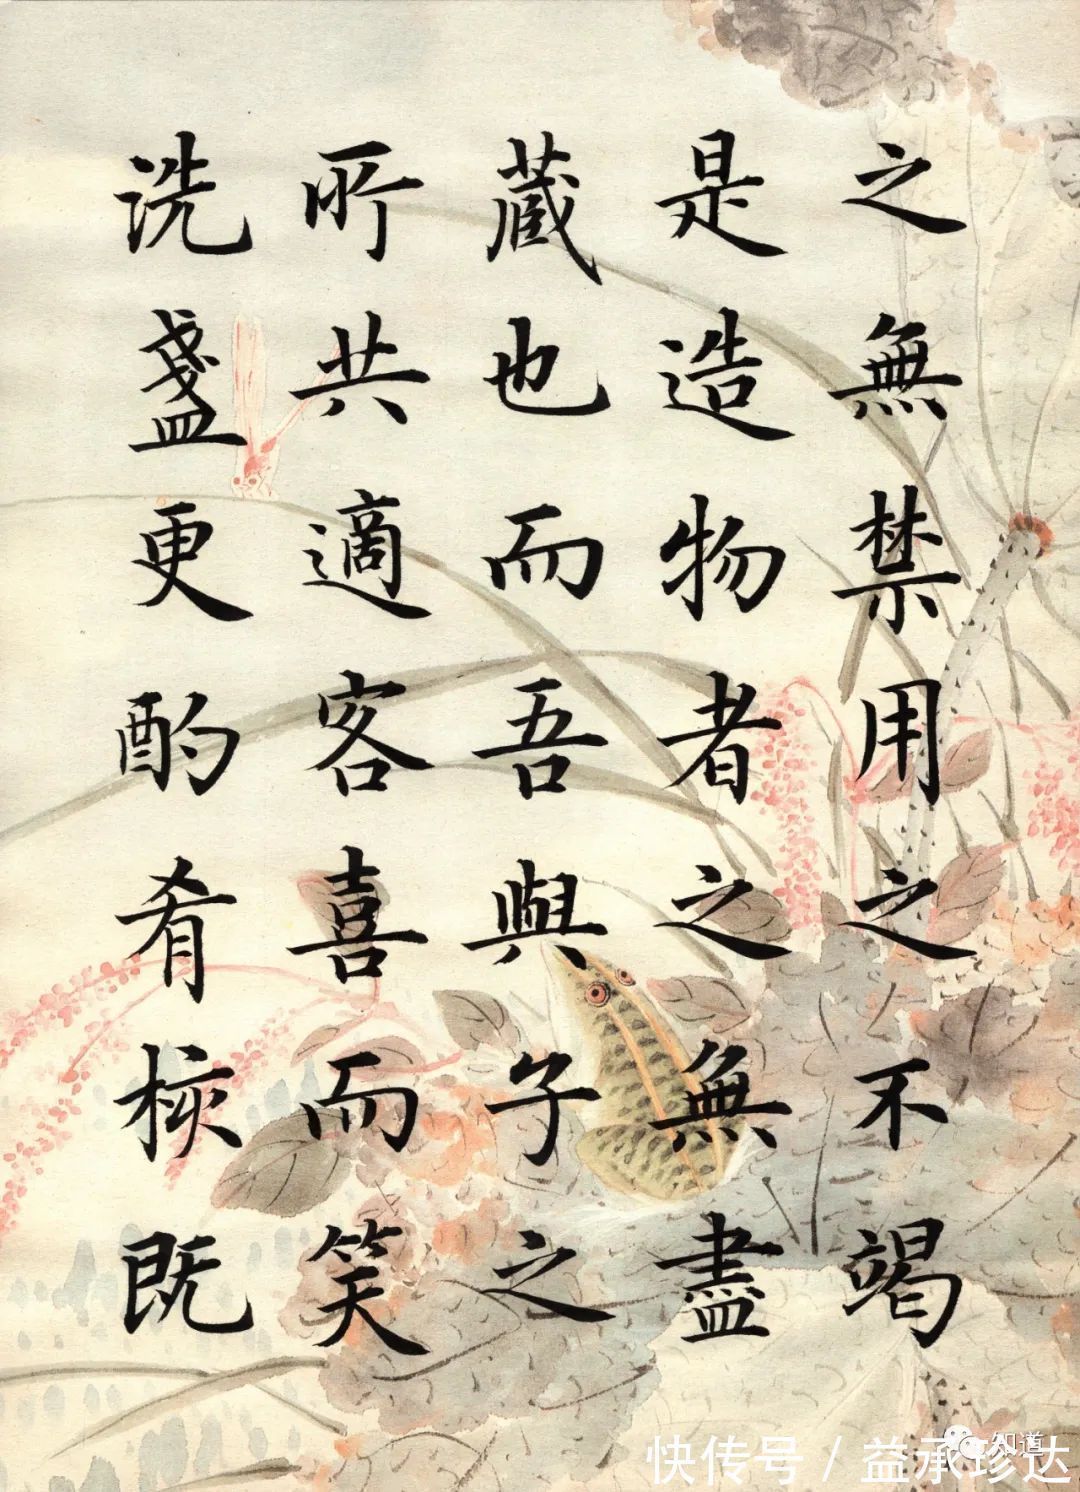 之無禁用之不竭
是造物者之無盡
藏也而吾與子之
所共適客喜而笑
洗盞更酌肴核既
知道
快传号 / 益承珍达